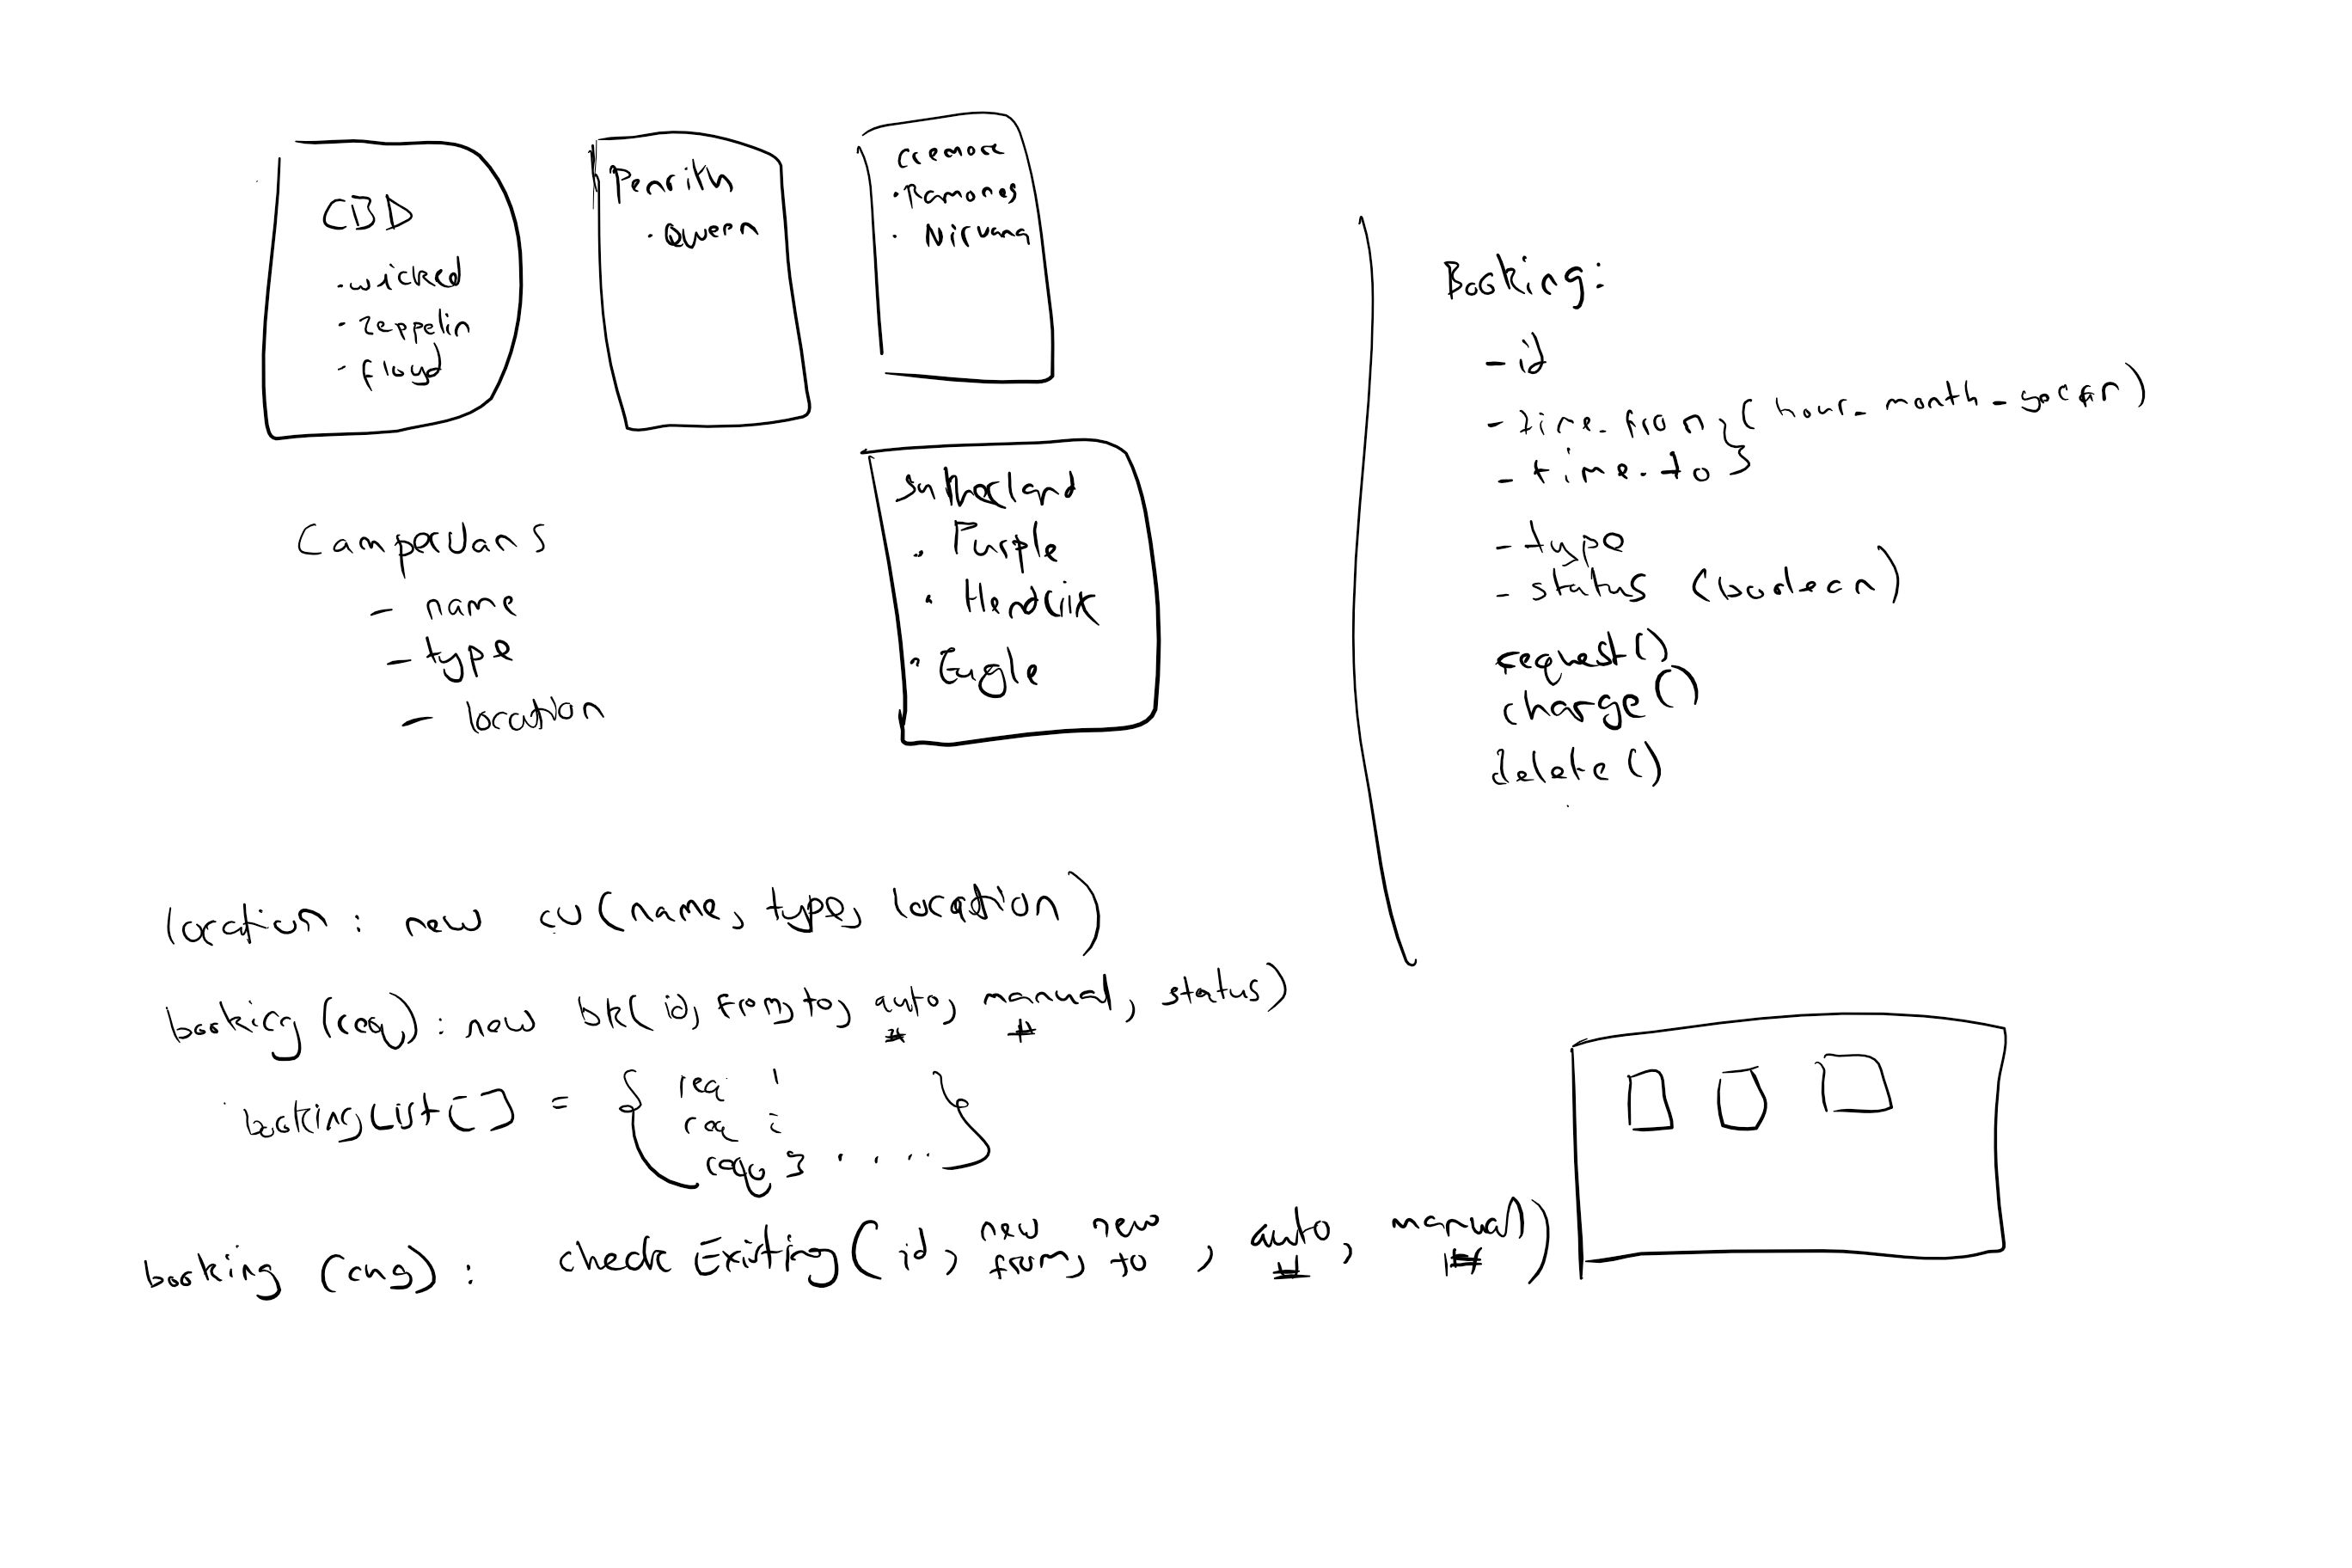 CBD
· wicked
· Zeppelin
· floyd
Penrith
· Queen
· Ramones
· Nirvana
Sutherland
· Purple
· Hendrix
· Eagle
Campervans
- name
- type
- location
Booking:
- id
- time_from } (hour_month_
- time_to }
- type
- status (boolean)
request()
change()
delete()
location: new cv(name, type, location)
booking (req): new bk(id, from, to, auto, manual, status)
# #
bookingList[] = { req 1
req 2
req 3 ..... }
booking (cng): check Existing (id, new from, new to, auto, manual)
# #